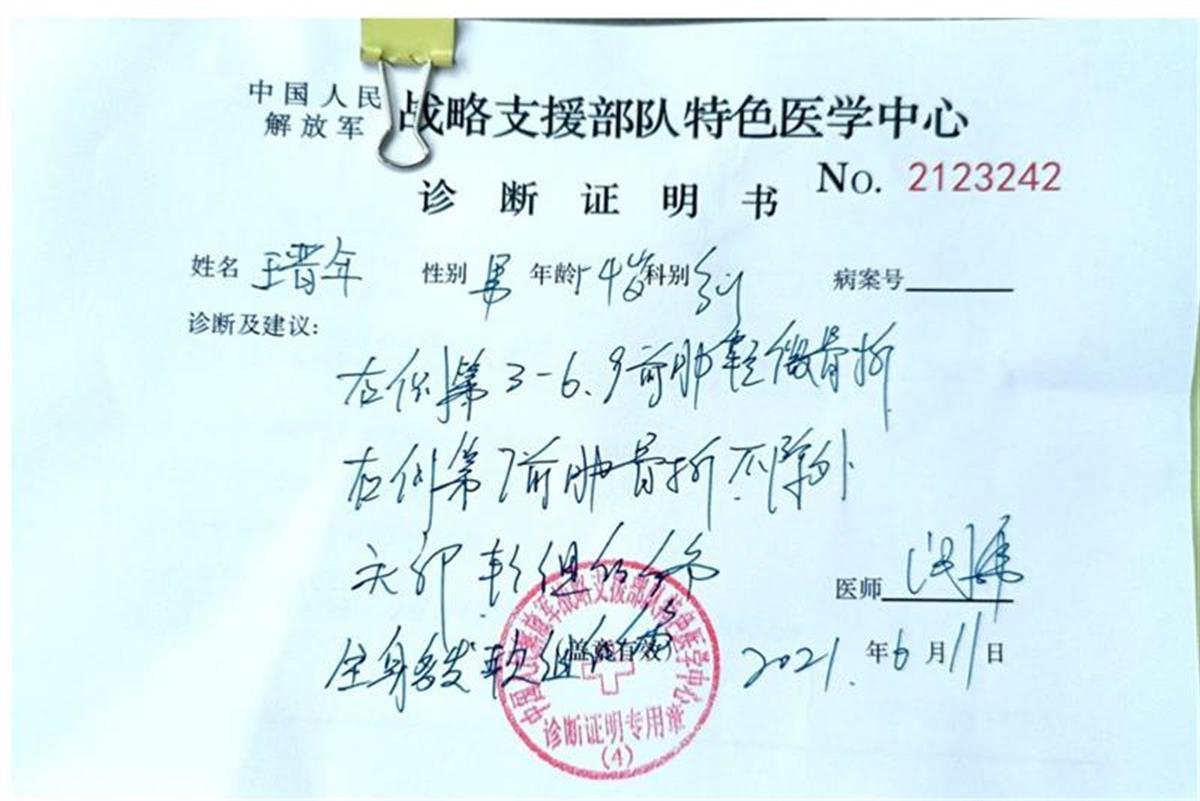 中国人民
解放军 战略支援部队特色医学中心
诊断证明书 No. 2123242
姓名 王晋年 性别 男 年龄 54岁 科别 外 病案号
诊断及建议：
右侧第3-6.9前肋轻微骨折
右侧第7前肋骨折不除外
头部软组织伤
医师
全身多发软组织伤
(盖章有效)
2021.年6月11日
中国人民解放军战略支援部队特色医学中心
诊断证明专用章
(4)